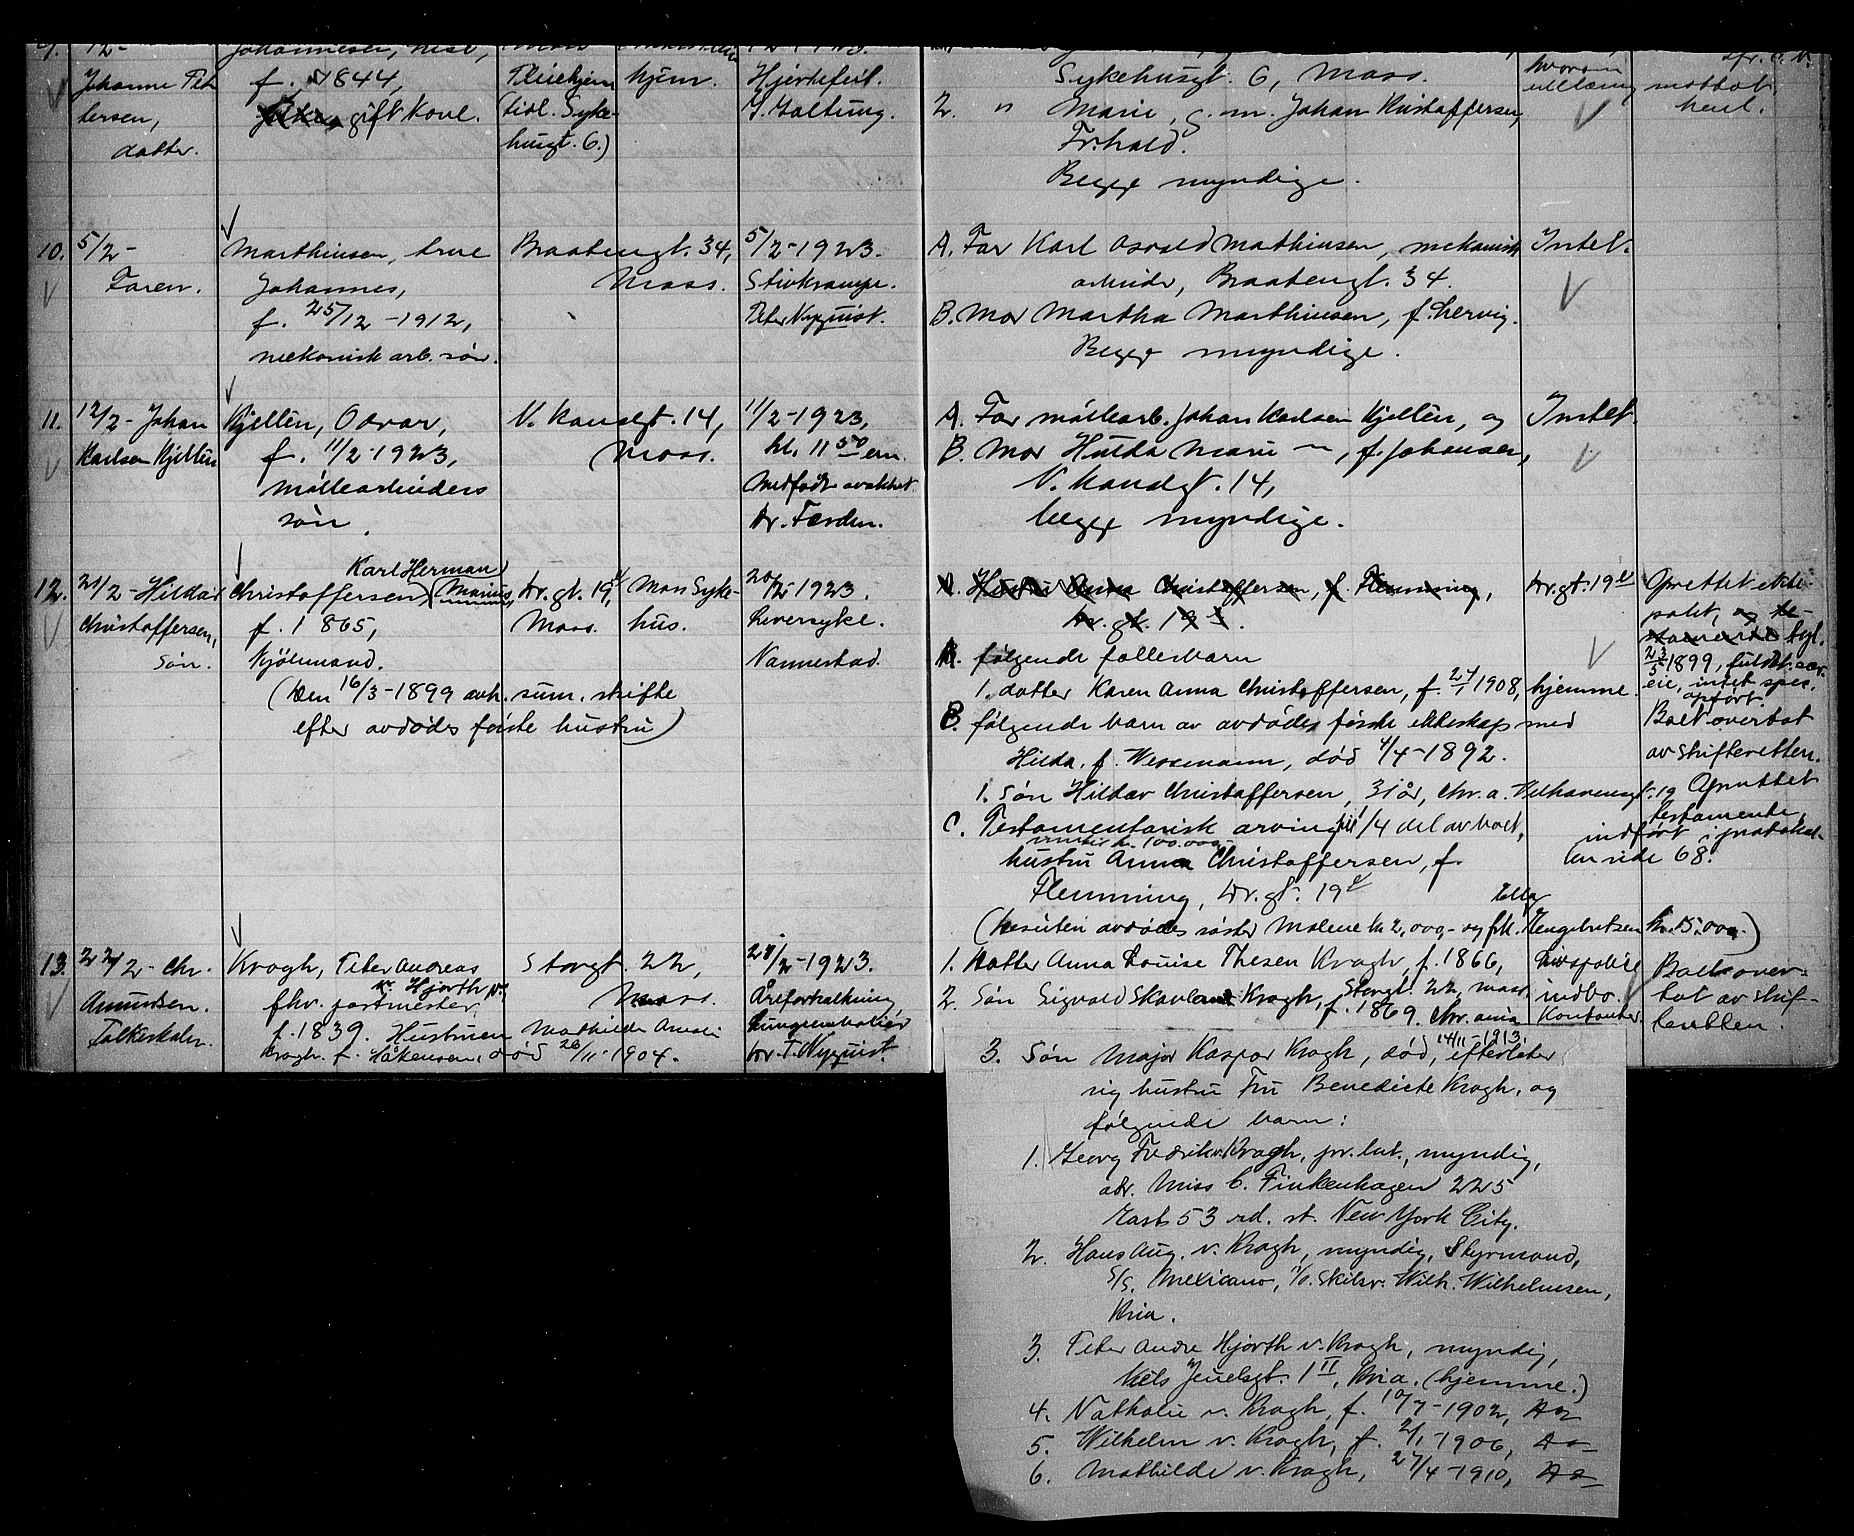 9. 12-
Johanne Pet
tersen,
datter.
Johannesen,
f. 1844,
gift kone.
Pleiehjem
(tidl. Syke-
husgt. 6.)
hjem.
Hjertefeil.
G. Galtung.
Sykehusgt. 6, Moss.
2. " Marie, g. m. Johan Kristoffersen,
Fr.hald.
Begge myndige.
hvorom
mottat
10. 5/2-
Faren.
Marthinsen,
Johannes,
f. 25/12-1912,
mekanisk arb. søn.
Braatengt. 34,
Moss.
5/2-1923.
Stivkrampe.
Peter Nyquist.
A. Far Karl Osvald Mathinsen, mekanisk
arbeider, Braatengt. 34.
B. Mor Martha Marthinsen, f. Lervig.
Begge myndige.
Intet.
11. 12/2- Johan
Karlsen Kjellén
Kjellén, Odvar,
f. 11/2-1923,
møllearbeiders
søn.
V. Kanalgt. 14,
Moss.
11/2-1923,
kl. 11 50 em.
Medfødt svakhet.
Dr. Færden.
A. Far møllearb. Johan Karlsen Kjellén, og
B. Mor Hulda Marie — , f. Johansen,
V. Kanalgt. 14,
begge myndige.
Intet.
12. 21/2- Hildar
Christoffersen,
søn.
Karl Herman
Christoffersen, (Marius,
f. 1865,
Kjøbmand.
(Den 16/3-1899 avh. sum. skifte
efter avdødes første hustru)
Dr. gt. 19,
Moss.
Moss Syke-
hus.
20/2-1923.
Leversyke.
Vannestad.
A. Hustru Anna Christoffersen, f. Flemming,
Dr. gt. 19
følgende fællesbarn
1. datter Karen Anna Christoffersen, f. 27/1 1908, hjemme.
B. følgende barn av avdødes første ekteskap med
Hilda, f. Wessmann, død 4/4-1892.
1. Søn Hildar Christoffersen, 31 år, Chr.a. Welhavensgt. 19
C. Testamentarisk arving til 1/4 del av boet,
kr. 100.000
hustru Anna Christoffersen, f.
Flemming, Dr. gt. 19
(Desuten avdødes søster Malene kr. 2,000,- og frk. Engebretsen kr. 15.000.)
Dr. gt. 19
Oprettet ekte-
pakt, tgl.
23/5 1899,
eie, intet spec.
opført.
Boet overtat
av skifteretten.
Oprettet
testamente,
indført i protokol-
len side 68.
13. 22/2- Chr.
Amundsen.
Falkeskalen.
Krogh, Peter Andreas
Hjorth v.
fhv. postmester,
f. 1839. Hustruen Mathilde Amalie
Krogh f. Håkensen, død 26/11-1904.
Storgt. 22,
Moss.
21/2-1923.
Åreforkalkning
Lungeembolier
Dr. P. Nyquist.
1. Datter Anna Louise Thesen Krogh, f. 1866,
Storgt. 22, Moss
2. Søn Sigvald Skavland Krogh, f. 1869. Chr.ania
Livspolise
indbo.
Kontanter.
Boet over-
tat av skif-
teretten.
3. Søn Major Kaspar Krogh, død 14/11-1913, efterlater
sig hustru Fru Benedicte Krogh, og
følgende barn:
1. Georg Fredrik v. Krogh, pr. lut., myndig,
adr. Miss C. Finkenhagen 225
East 53 rd. st. New York City.
2. Hans Aug. v. Krogh, myndig, Styrmand,
S/S. Mexicano, c/o. Skibsr. Wilh. Wilhelmsen,
Kria.
3. Peter Andre Hjorth v. Krogh, myndig,
Niels Juelsgt. 1 II, Kria. (hjemme.)
4. Nathalie v. Krogh, f. 10/7-1902, do
5. Wilhelm v. Krogh, f. 2/1-1906, do
6. Mathilde v. Krogh, 27/4-1910, do